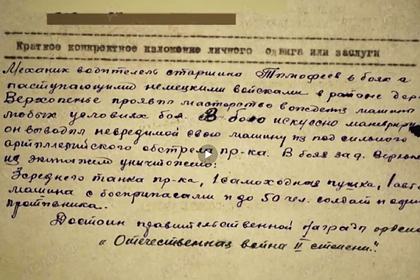 Краткое конкретное изложение личного подвига или заслуги
Механик водитель старшина Тимофеев в боях с
наступающими немецкими войсками в районе дер
Верхопенье проявил мастерство вождения машины
любых условиях боя. В бою искусно маневрируя
он выводил невредимой свою машину из под сильного
артиллерийского обстрела пр-ка. В боях за д. Верхоп
экипажем уничтожено:
3 средних танка пр-ка, 1 самоходная пушка, 1 авто
машина с боеприпасами и до 50 чел. солдат и офиц
противника.
Достоин правительственной награды орден
"Отечественная война II степени".